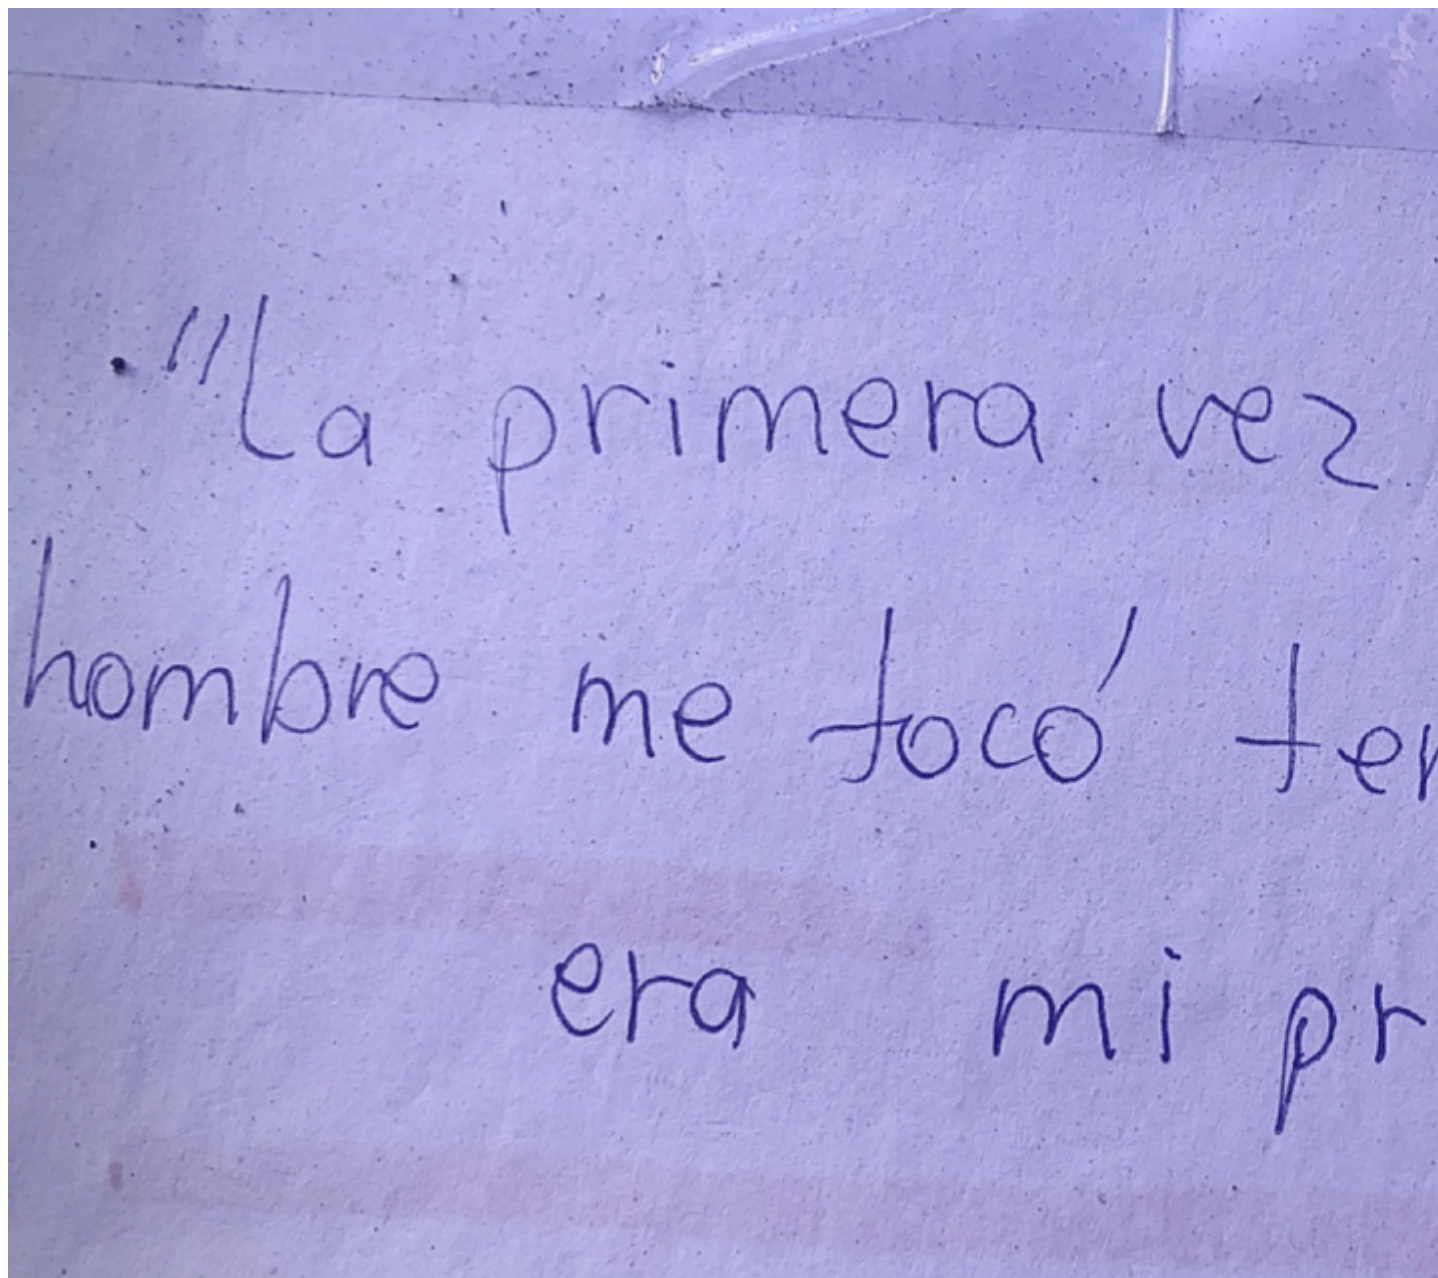 "La primera vez
hombre me tocó ten
era mi pr